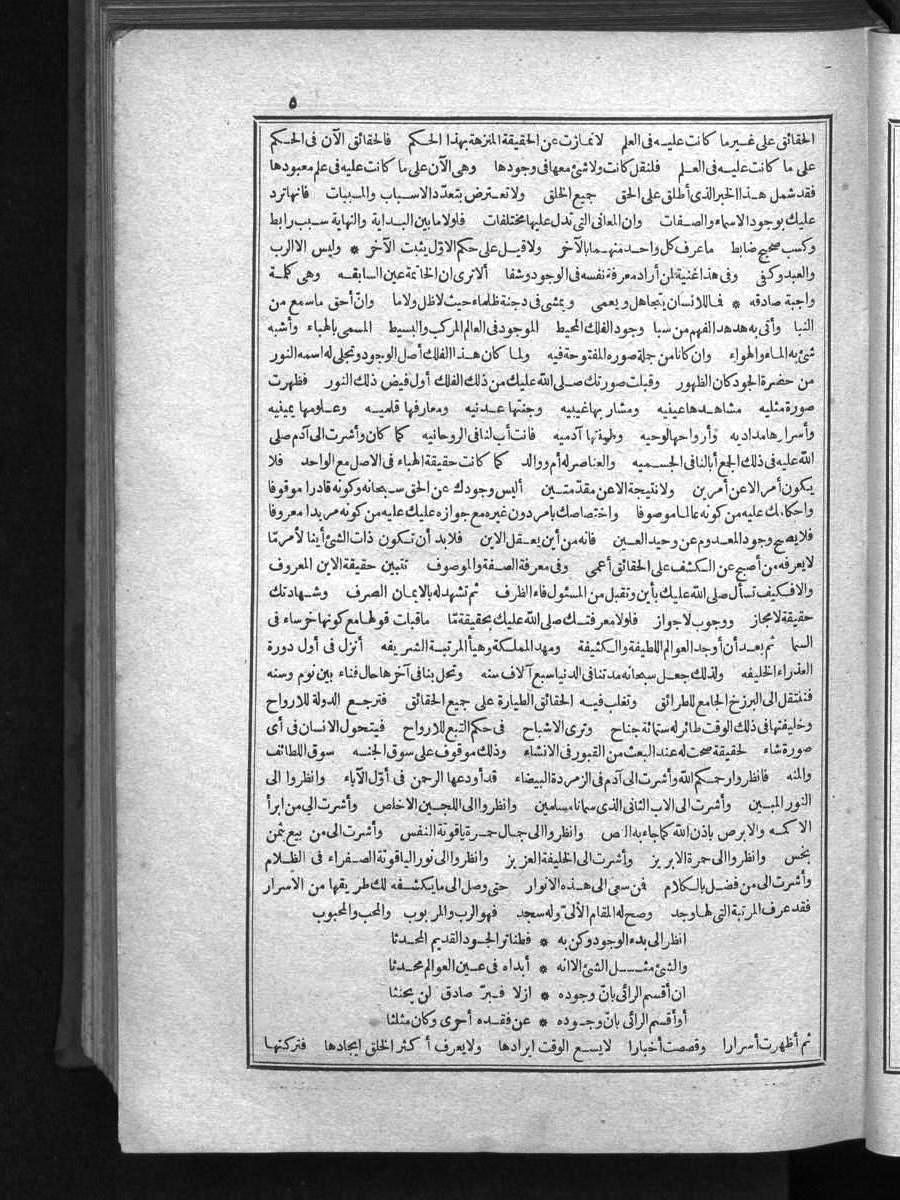 ٥
الحقائق على غير ما كانت عليه في العلم لانمازت عن الحقيقة المنزهة بهذا الحكم فالحقائق الآن في الحكم
على ما كانت عليه في العلم فلنقل كانت ولا شئ معها في وجودها وهي الآن على ما كانت عليه في علم معبودها
فقد شمل هذا الخبر الذي أطلق على الحق جميع الخلق ولا تعترض بتعدد الاسباب والمسببات فانها ترد
عليك بوجود الاسماء والصفات وان المعاني التي تدل عليها مختلفات فلولا ما بين البداية والنهاية سبب رابط
وكسب صحيح ضابط ما عرف كل واحد منهما بالآخر ولا قيل على حكم الاول يثبت الآخر * وليس الا الرب
والعبد وكفى وفي هذا غنية لمن أراد معرفة نفسه في الوجود وشفا ألا ترى ان الخاتمة عين السابقه وهي كلمة
واجبة صادقه * فما للانسان يتجاهل ويعمى ويمشى في دجنة ظلماء حيث لاظل ولا ما وانّ أحق ما سمع من
النبا وأتى به هدهد الفهم من سبا وجود الفلك المحيط الموجود في العالم المركب والبسيط المسمى بالهباء وأشبه
شئ به الماء والهواء وان كانا من جملة صوره المفتوحة فيه ولما كان هذا الفلك أصل الوجود وتجلى له اسمه النور
من حضرة الجود كان الظهور وقبلت صورتك صلى الله عليك من ذلك الفلك أول فيض ذلك النور فظهرت
صورة مثليه مشاهدها عينيه ومشاربها غيبيه وجنتها عدنيه ومعارفها قلميه وعلومها يمينيه
وأسرارها مداديه وأرواحها لوحيه وطينتها آدميه فانت أب لنا في الروحانيه كما كان وأشرت الى آدم صلى
الله عليه في ذلك الجمع أبا لنا في الجسميه والعناصر له أم ووالد كما كانت حقيقة الهباء في الاصل مع الواحد فلا
يكون أمر الا عن أمرين ولا نتيجة الا عن مقدّمتين أليس وجودك عن الحق سبحانه وكونه قادرا موقوفا
واحكامك عليه من كونه عالما موصوفا واختصاصك بامر دون غيره مع جوازه عليك عليه من كونه مريدا معروفا
فلا يصح وجود المعدوم عن وحيد العين فانه من أين يعقل الاين فلا بد أن تكون ذات الشئ أينا لأمر مّا
لا يعرفه من أصبح عن الكشف على الحقائق أعمى وفي معرفة الصفة والموصوف تتبين حقيقة الاين المعروف
والا فكيف تسأل صلى الله عليك بأين وتقبل من المسئول فاء الظرف ثم تشهد له بالايمان الصرف وشهادتك
حقيقة لا مجاز ووجوب لا جواز فلولا معرفتك صلى الله عليك بحقيقة مّا ما قبلت قولها مع كونها خرساء في
السما ثم بعد أن أوجد العوالم اللطيفة والكثيفة ومهد المملكة وهيأ المرتبة الشريفه أنزل في أول دورة
العذراء الخليفه ولذلك جعل سبحانه مدتنا في الدنيا سبع آلاف سنه وتحل بنا في آخرها حال فناء بين نوم وسنه
فننتقل الى البرزخ الجامع للطرائق وتغلب فيه الحقائق الطيارة على جميع الحقائق فترجع الدولة للارواح
وخليفتها في ذلك الوقت طائر له ستمائة جناح وترى الاشباح في حكم التبع للارواح فيتحول الانسان في أى
صورة شاء لحقيقة صحت له عند البعث من القبور في الانشاء وذلك موقوف على سوق الجنه سوق اللطائف
والمنه فانظروا رحمكم الله وأشرت الى آدم في الزمردة البيضاء قد أودعها الرحمن في أوّل الآباء وانظروا الى
النور المبين وأشرت الى الاب الثاني الذى سمانا مسلمين وانظروا الى اللجين الاخلص وأشرت الى من ابرأ
الاكمه والابرص باذن الله كما جاء به النص وانظروا الى جمال حمرة ياقوتة النفس وأشرت الى من بيع بثمن
بخس وانظروا الى حمرة الابريز وأشرت الى الخليفة العزيز وانظروا الى نور الياقوتة الصفراء في الظلام
وأشرت الى من فضل بالكلام فمن سعى الى هذه الانوار حتى وصل الى ما يكشفه لك طريقها من الاسرار
فقد عرف المرتبة التي لها وجد وصح له المقام الألىّ وله سجد فهو الرب والمربوب والمحب والمحبوب
انظر الى بدء الوجود وكن به * فطنا تر الجود القديم المحدثا
والشئ مثل الشئ الا انه * أبداه في عين العوالم محدثا
ان أقسم الرائي بانّ وجوده * ازلا فبرّ صادق لن يحنثا
أو أقسم الرائي بانّ وجوده * عن فقده أحرى وكان مثلثا
ثم أظهرت أسرارا وقصصت أخبارا لا يسع الوقت ايرادها ولا يعرف أكثر الخلق ايجادها فتركتها